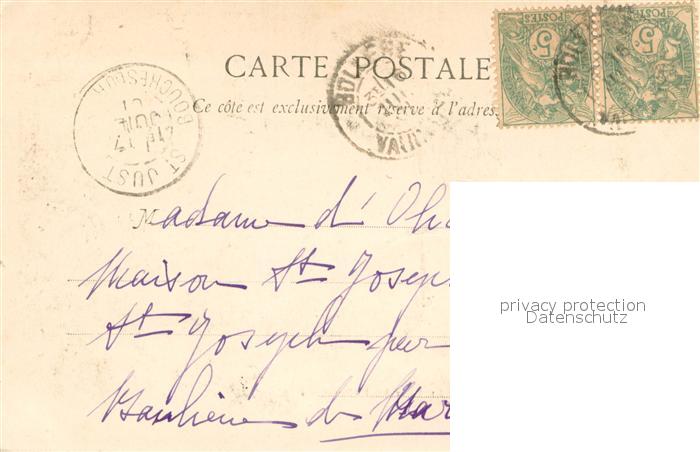 CARTE POSTALE
Ce côté est exclusivement réservé à l'adres
POSTES 5c
POSTES 5c
BOLLÈNE
VAUCL
ST JUST
BOUCHES DU R
17
JUIL
01
Madame d'Oli
Maison St Joseph
St Joseph par
Banlieue de Mar
privacy protection
Datenschutz